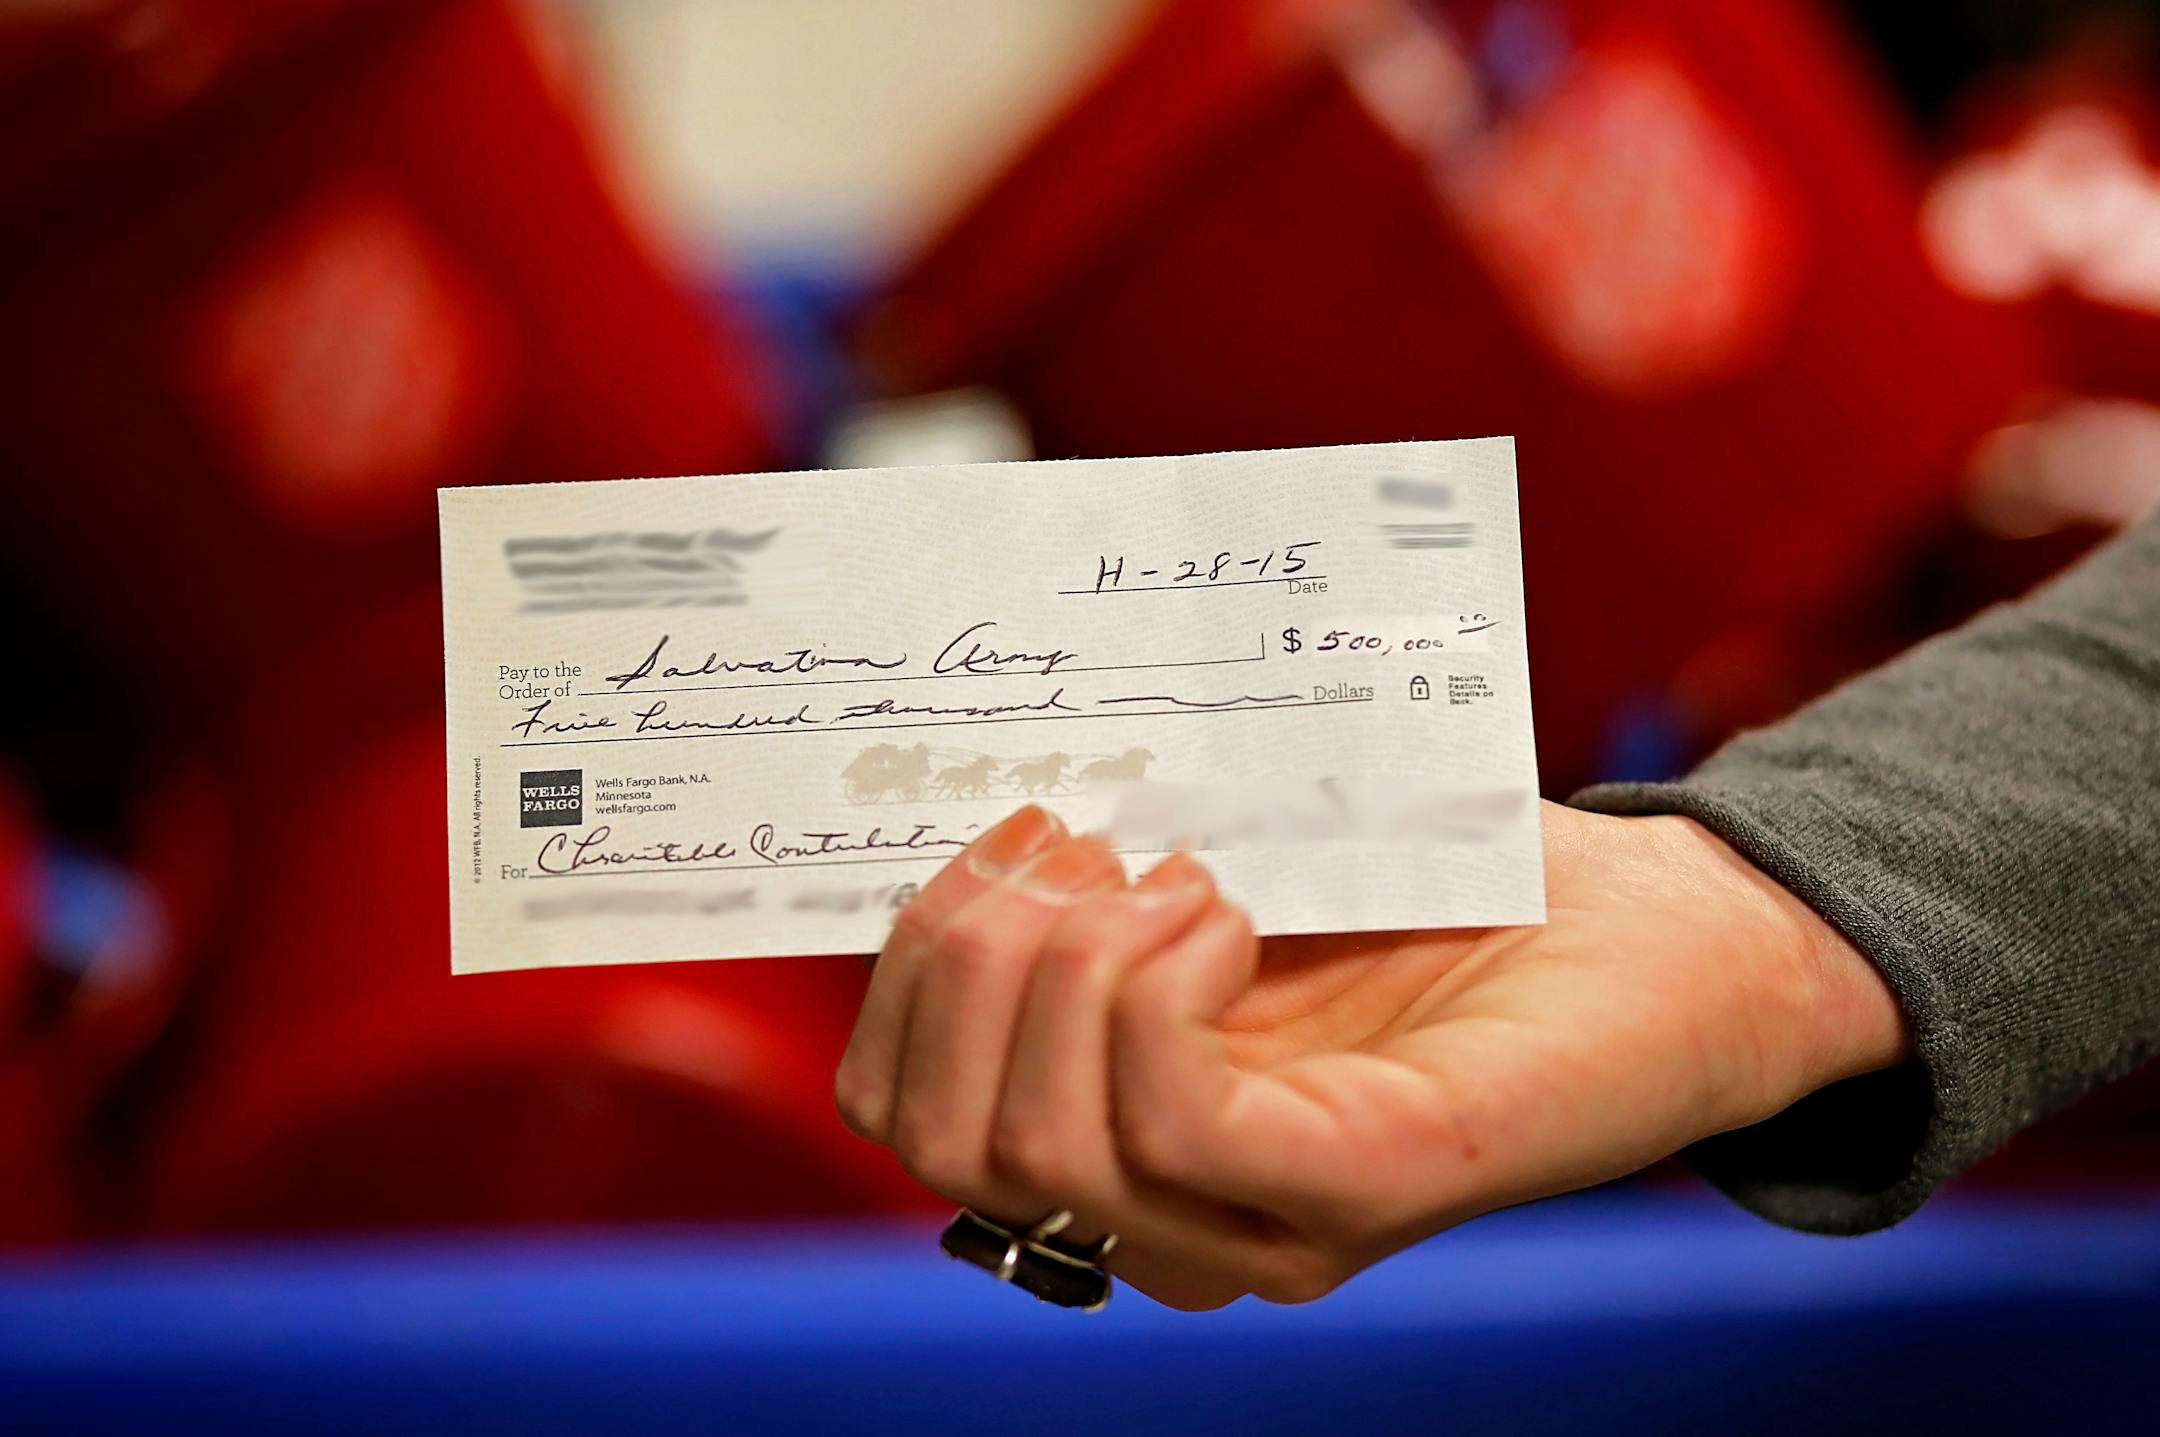 11-28-15
Date
Pay to the
Order of Salvation Army $ 500,000 00
Five hundred thousand Dollars
Security
Features
Details on
Back.
WELLS
FARGO
Wells Fargo Bank, N.A.
Minnesota
wellsfargo.com
For Charitable Contribution
© 2012 WFB, N.A. All rights reserved.